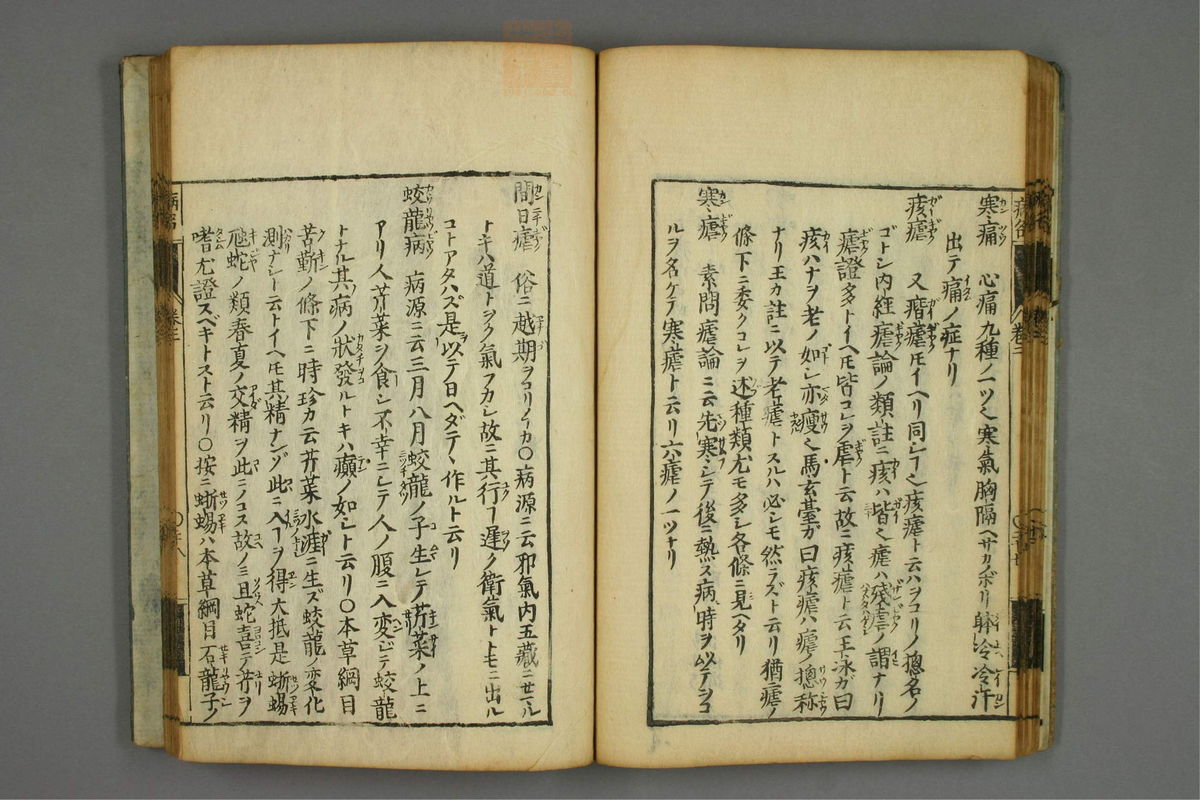 寒痛 心痛九種ノ一ツ也寒氣胸隔ヘサカノボリ躰冷冷汗
出テ痛ノ症ナリ
痎瘧 又㾬瘧𪜈イヘリ同シヿ也痎瘧ト云ハヲコリノ摠名ノ
ゴトシ内經瘧論ノ類註ニ痎ハ皆也瘧ハ殘虐ノ謂ナリ
瘧證多トイヘ𪜈皆コレヲ虐ト云故ニ痎瘧ト云王冰ガ曰
痎ハナヲ老ノ如シ亦瘦也馬玄臺ガ曰痎瘧ハ瘧ノ摠称
ナリ王カ註ニ以テ老瘧トスルハ必シモ然ラズト云リ猶瘧ノ
條下ニ委クコレヲ述種類尤モ多シ各條ニ見ヘタリ
寒瘧 素問瘧論ニ云先寒シテ後ニ熱ス病時ヲ以テヲコ
ルヲ名ケテ寒瘧ト云リ六瘧ノ一ツナリ
間日瘧 俗ニ越期ヲコリイカ〇病源ニ云邪氣内五藏ニ
トキハ道トヲク氣フカシ故ニ其行ヿ遲ク衛氣トトモニ出ル
コトアタハズ是以テ日ヘダテヽ作ルト云リ
蛟龍病 病源ニ云三月八月蛟龍ノ子生レテ芹菜ノ上ニ
アリ人芹菜ヲ食シ不幸ニシテ人ノ腹ニ入変ジテ蛟龍
トナル其病ノ狀發ルトキハ癲ノ如シト云リ〇本草綱目
苦蘄ノ條下ニ時珍カ云芹菜水涯ニ生ズ蛟龍ノ変化
測ナシト云トイヘ𪜈其精ナンゾ此ニ入ヿヲ得大抵是蜥蜴
虺蛇ノ類春夏ノ交精ヲ此ニノコス故ノミ且蛇喜ンデ芹ヲ
嗜尤證スベキトスト云リ〇按ニ蜥蜴ハ本草綱目石龍子ノ
病名
卷三